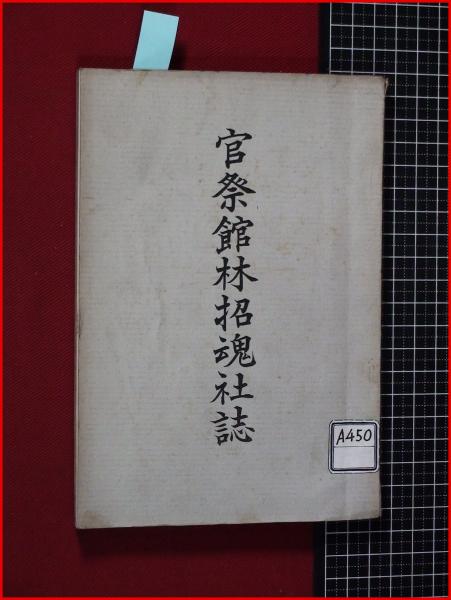 官祭館林招魂社誌
A450